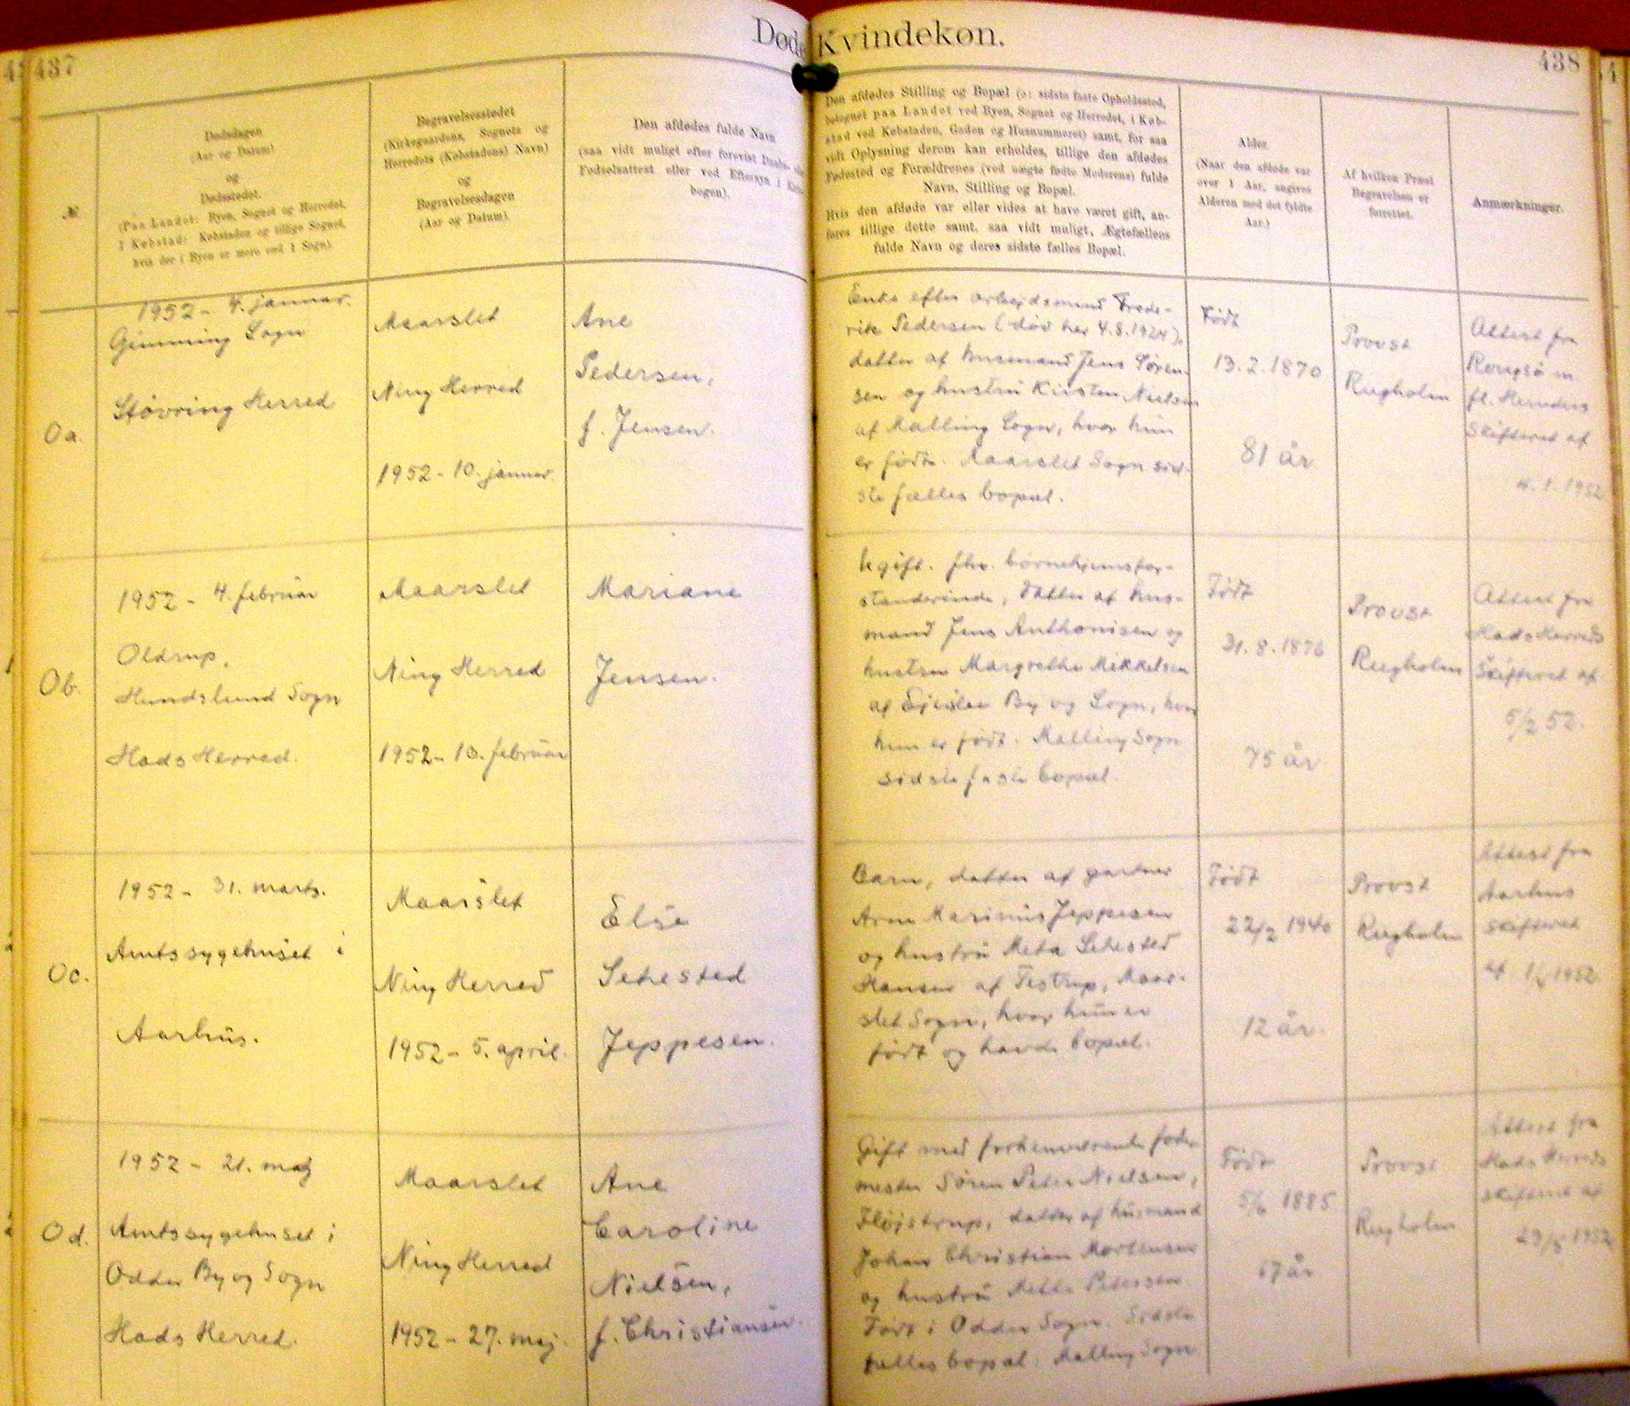 Døde Kvindekøn.
437
438
№
Dødsdagen
(Aar og Datum)
og
Dødsstedet.
(Paa Landet: Byen, Sognet og Herredet,
I Købstad: Købstaden og tillige Sognet,
hvis der i Byen er mere end 1 Sogn).
Begravelsesstedet
(Kirkegaardens, Sognets og
Herredets (Købstadens) Navn)
og
Begravelsesdagen
(Aar og Datum).
Den afdødes fulde Navn
(saa vidt muligt efter forevist
Fødselsattest eller ved Eftersyn i
bogen).
Den afdødes Stilling og Bopæl (ɔ: sidste faste Opholdssted,
betegnet paa Landet ved Byen, Sognet og Herredet, i Køb-
stad ved Købstaden, Gaden og Husnummeret) samt, for saa
vidt Oplysning derom kan erholdes, tillige den afdødes
Fødested og Forældrenes (ved uægte fødte Moderens) fulde
Navn, Stilling og Bopæl.
Hvis den afdøde var eller vides at have været gift, an-
føres tillige dette samt, saa vidt muligt, Ægtefællens
fulde Navn og deres sidste fælles Bopæl.
Alder.
(Naar den afdøde var
over 1 Aar, angives
Alderen med det fyldte
Aar.)
Af hvilken Præst
Begravelsen er
forrettet.
Anmærkninger.
0a.
1952 - 4. januar.
Gimming Sogn
Støvring Herred
Maarslet
Ning Herred
1952 - 10. januar.
Ane
Pedersen,
f. Jensen.
Enke efter arbejdsmand Frede-
rik Pedersen (død her 4.8.1924),
datter af husmand Jens Søren-
sen og hustru Kirsten Nielsen
af Malling Sogn, hvor hun
er født. Maarslet Sogn sid-
ste fælles bopæl.
Født
13.2.1870
81 år
Provst
Rugholm
Attest fra
Rougsø m.
fl. Herreders
Skifteret af
4.1.1952
0b.
1952 - 4. februar
Oldrup,
Hundslund Sogn
Hads Herred.
Maarslet
Ning Herred
1952 - 13. februar
Mariane
Jensen.
Ugift. fhv. børnehjemsfor-
standerinde, datter af hus-
mand Jens Anthonisen og
hustru Margrethe Mikkelsen
af By og Sogn, hvor
hun er født. Malling Sogn
sidste faste bopæl.
Født
31.8.1876
75 år
Provst
Rugholm
Attest fra
Hads Herreds
Skifteret af
5/2 52.
0c.
1952 - 31. marts.
Amtssygehuset i
Aarhus.
Maarslet
Ning Herred
1952 - 5. april.
Else
Sehested
Jeppesen.
Barn, datter af gartner
Arne Marinus Jeppesen
og hustru Meta Sehested
Hansen af Testrup, Maar-
slet Sogn, hvor hun er
født og havde bopæl.
Født
22/2 1940
12 år.
Provst
Rugholm
Attest fra
Aarhus
skifteret
af 1/4 1952
0d.
1952 - 21. maj
Amtssygehuset i
Odder By og Sogn
Hads Herred.
Maarslet
Ning Herred
1952 - 27. maj.
Ane
Caroline
Nielsen,
f. Christiansen.
Gift med forhenværende foder-
mester Søren Peter Nielsen,
Fløjstrup, datter af husmand
Johan Christian Mortensen
og hustru Mette Petersen.
Født i Odder Sogn. Sidste
fælles bopæl: Malling Sogn
Født
5/6 1885
67 år
Provst
Rugholm
Attest fra
Hads Herreds
skifteret af
29/5 1952